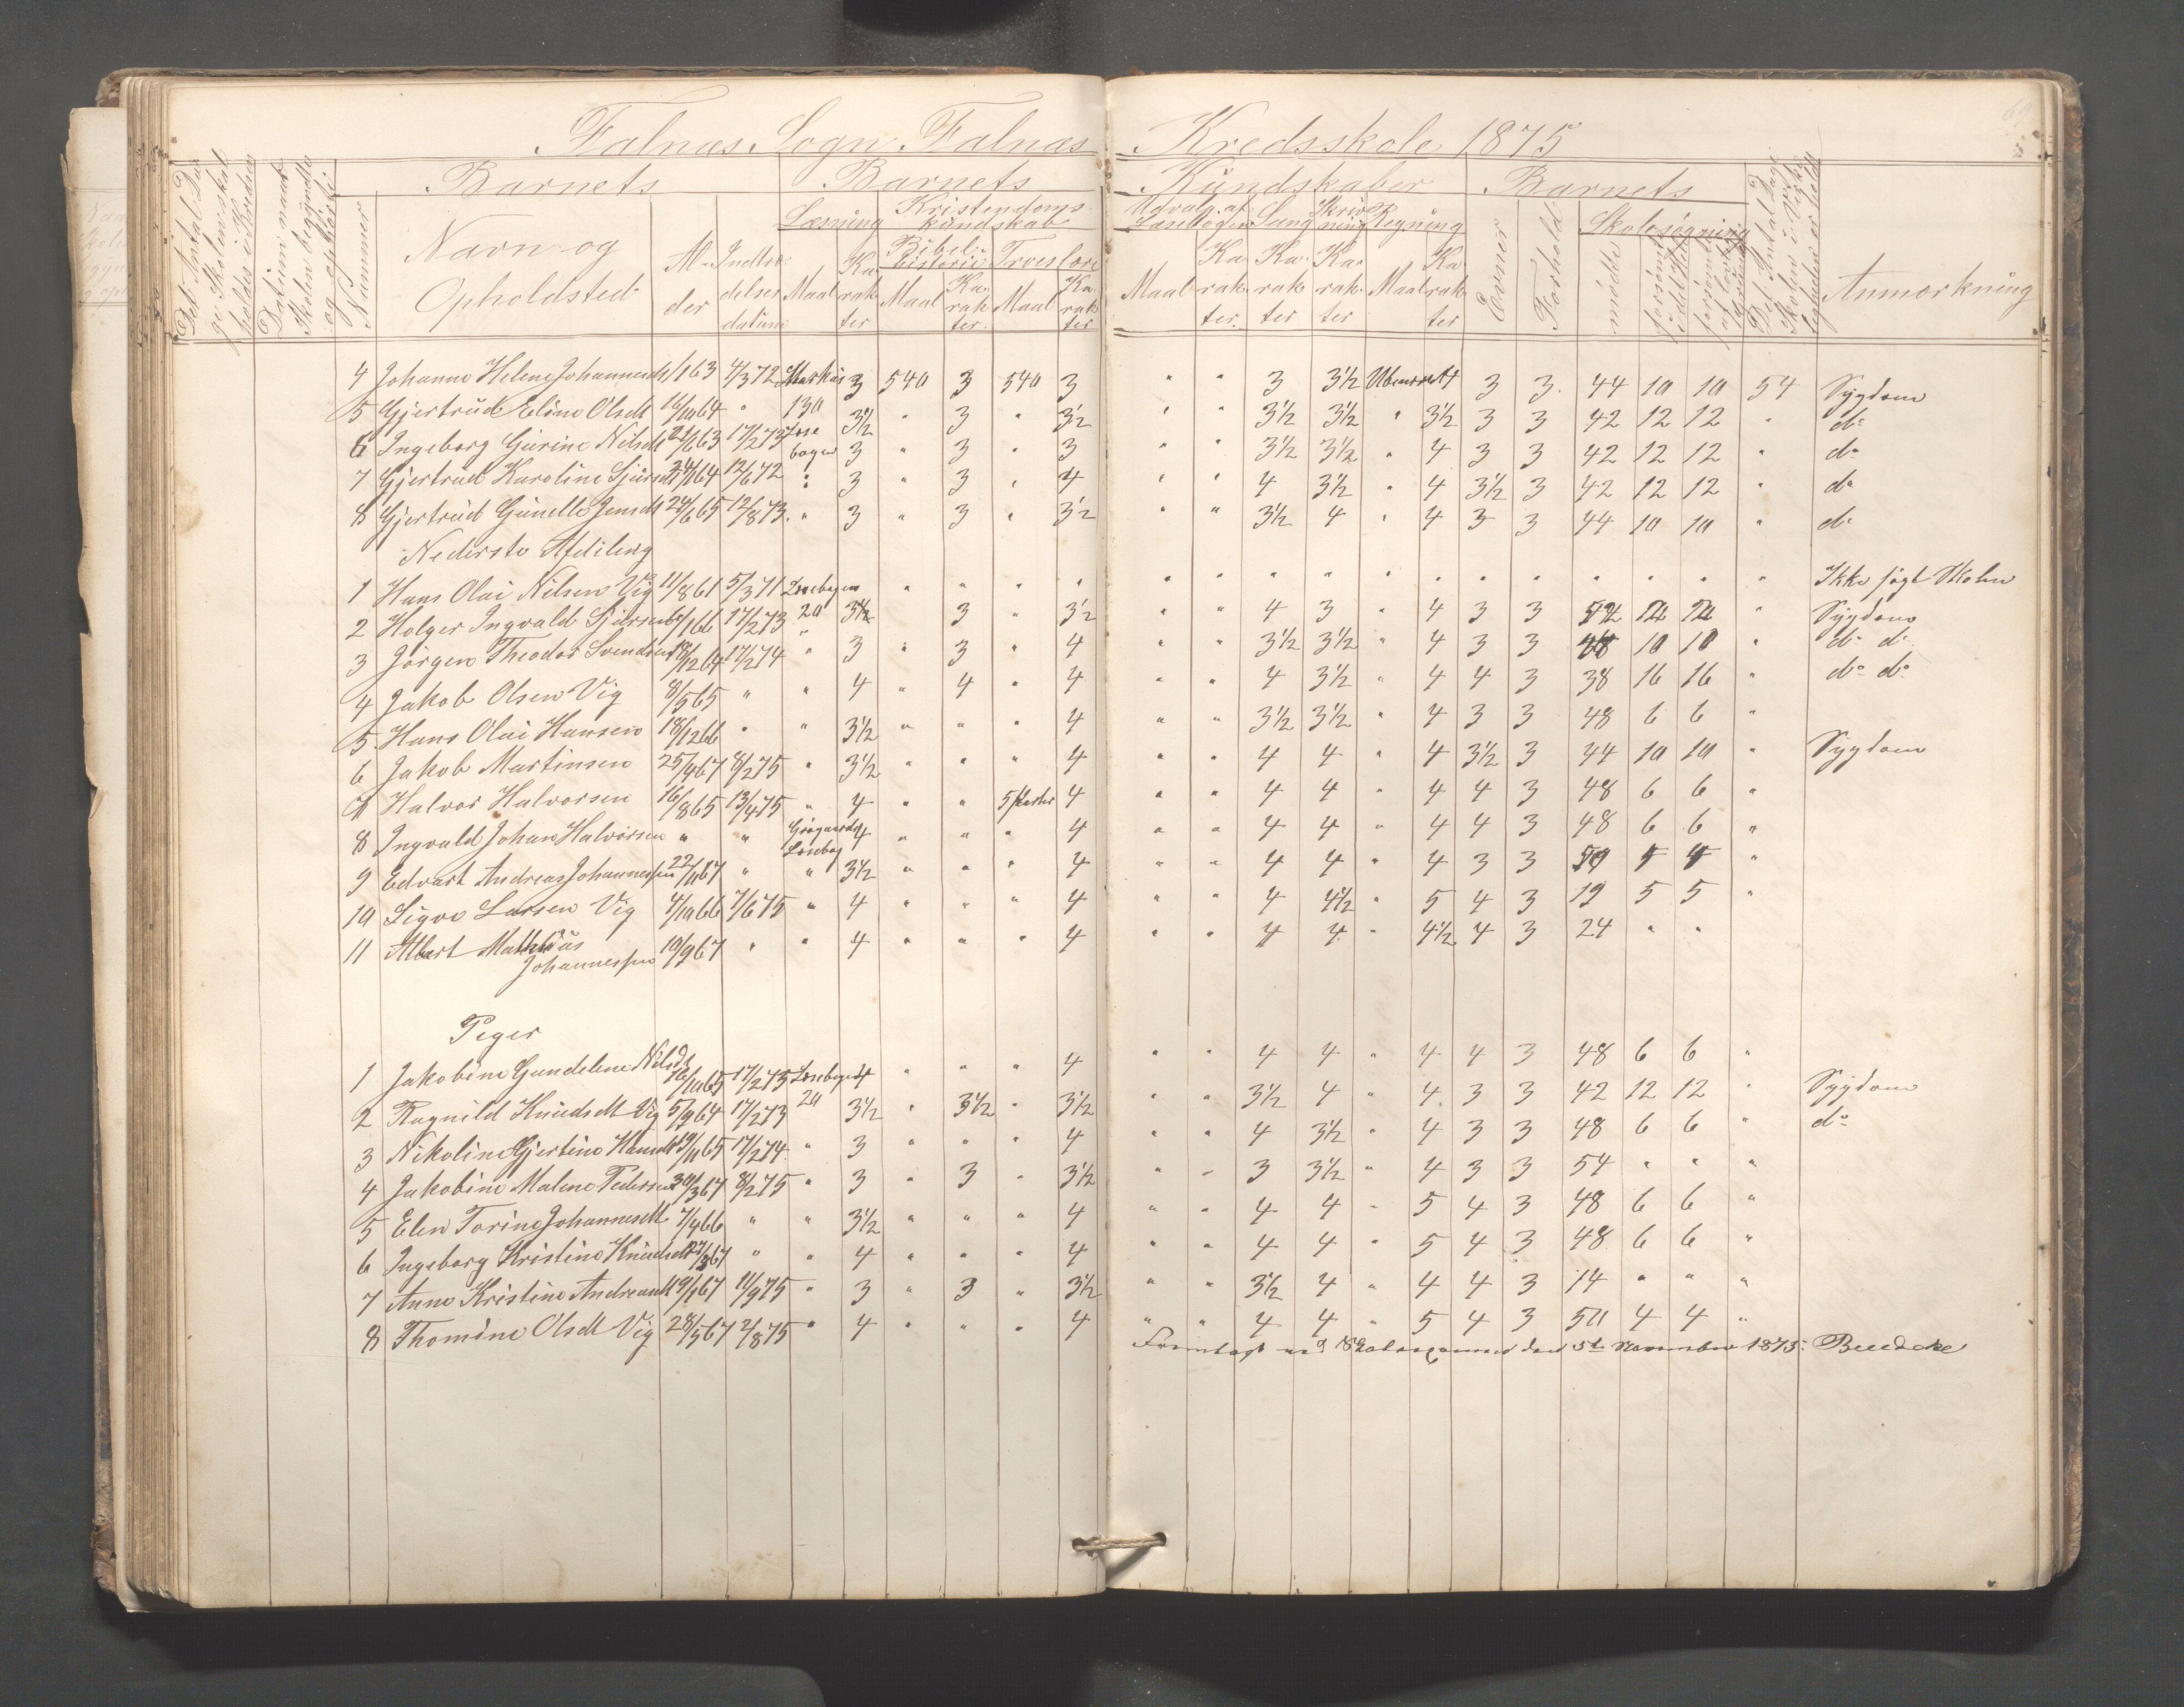 Falnæs Sogn Falnæs Kredsskole 1875
Barnets Barnets Kundskaber Barnets
Det Antal Dage Skolen skal holdes i Kredsen
Datum naar Skolen begyndte og ophørte
Nummer
Navn og Opholdsted
Alder
Indtrædelsesdatum
Læsning Maal Karakter
Kristendomskundskab
Bibelhistorie Maal Karakter
Troeslære Maal Karakter
Udvalg af Læsebogen Maal Karakter
Sang Karakter
Skrivning Karakter
Regning Maal Karakter
Evner
Forhold
Skolesøgning
mødte
forsømte i det Hele
forsømte af lovlig Grund
Det Antal Dage Skolen i Virkeligheden er holdt
Anmærkning
4 Johanne Helene Johannesdt 1/1 63 4/3 72 Markus 3 540 3 540 3 " " 3 3½ Ubenævnt 4 3 3 44 10 10 54 Sygdom
5 Gjertrud Eline Olsdt 16/10 64 " 130 3½ " 3 " 3½ " " 3½ 3½ " 3½ 3 3 42 12 12 " do
6 Ingeborg Gurine Nilsdt 21/1 63 17/2 73 Læse bogen 3 " 3 " 3 " " 3½ 3½ " 4 3 3 42 12 12 " do
7 Gjertrud Karoline Sjursdt 24/1 64 12/6 72 " 3 " 3 " 4 " " 4 3½ " 4 3½ 3 42 12 12 " do
8 Gjertrud Gunelle Jensdt 24/6 65 12/8 73 " 3 " 3 " 3½ " " 3½ 4 " 4 3 3 44 10 10 " do
Nederste Afdeling
1 Hans Olai Nilsen Vig 11/8 61 5/3 71 Læsebogen " " " " " " " " " " " " " " " " Ikke søgt Skolen
2 Holger Ingvald Sjursen 6/1 66 17/2 73 20 3½ 3 " 3½ " " 4 3 " 4 3 3 " Sygdom
3 Jørgen Theodor Svendsen 18/12 64 17/2 74 " 3 " 3 " 4 " " 3½ 3½ " 4 3 3 10 10 " do do
4 Jakob Olsen Vig 8/5 65 " " 4 " 4 " 4 " " 4 3½ " 4 4 3 38 16 16 " do do
5 Hans Olai Hansen 18/12 66 " " 3½ " " " 4 " " 3½ 3½ " 4 3 3 48 6 6 "
6 Jakob Martinsen 25/4 67 8/2 75 " 3½ " " " 4 " " 4 4 " 4 3½ 3 44 10 10 " Sygdom
7 Halvor Halvorsen 16/8 65 13/4 75 " 4 " " 5 Parter 4 " " 4 4 " 4 4 3 48 6 6 "
8 Ingvald Johan Halvorsen " " Gjøgaards Læsebog 4 " " " 4 " " 4 4 " 4 4 3 48 6 6 "
9 Edvart Andreas Johannessen 22/11 67 " " 3½ " " " 4 " " 4 4 " 4 3 3 "
10 Sigve Larsen Vig 4/10 66 7/6 75 " 4 " " " 4 " " 4 4½ " 5 4 3 19 5 5 "
11 Albert Mathias Johannessen 10/9 67 " " 4 " " " 4 " " 4 4 " 4½ 4 3 24 " "
Piger
1 Jakobine Gundeline Nilsdt 16/10 65 17/2 75 Læsebogen 4 " " " 4 " " 4 4 " 4 4 3 48 6 6 "
2 Ragnild Knudsdt Vig 5/9 64 17/2 73 20 3½ " 3½ " 3½ " " 3½ 4 " 4 3 3 42 12 12 " Sygdom
3 Nikoline Gjertine Hansdt 19/11 65 17/2 74 " 3 " " " 4 " " 4 3½ " 4 3 3 48 6 6 " do
4 Jakobine Malene Pedersen 30/3 67 8/2 75 " 3 " 3 " 3½ " " 3 3½ " 4 3 3 54 " " "
5 Elen Torine Johannesdt 7/4 66 " " 3½ " " " 4 " " 4 4 " 5 4 3 48 6 6 "
6 Ingeborg Kristine Knudsdt 27/3 67 " " 4 " " " 4 " " 4 4 " 5 4 3 48 6 6 "
7 Anne Kristine Andreasdt 19/1 67 11/9 75 " 3 " 3 " 3½ " " 3½ 4 " 4 4 3 14 " " "
8 Thomine Olsdt Vig 28/5 67 2/8 75 " 4 " " " 4 " " 4 4 " 5 4 3 50 4 4 "
Fremlagt ved Skoleexamen den 5te November 1875: